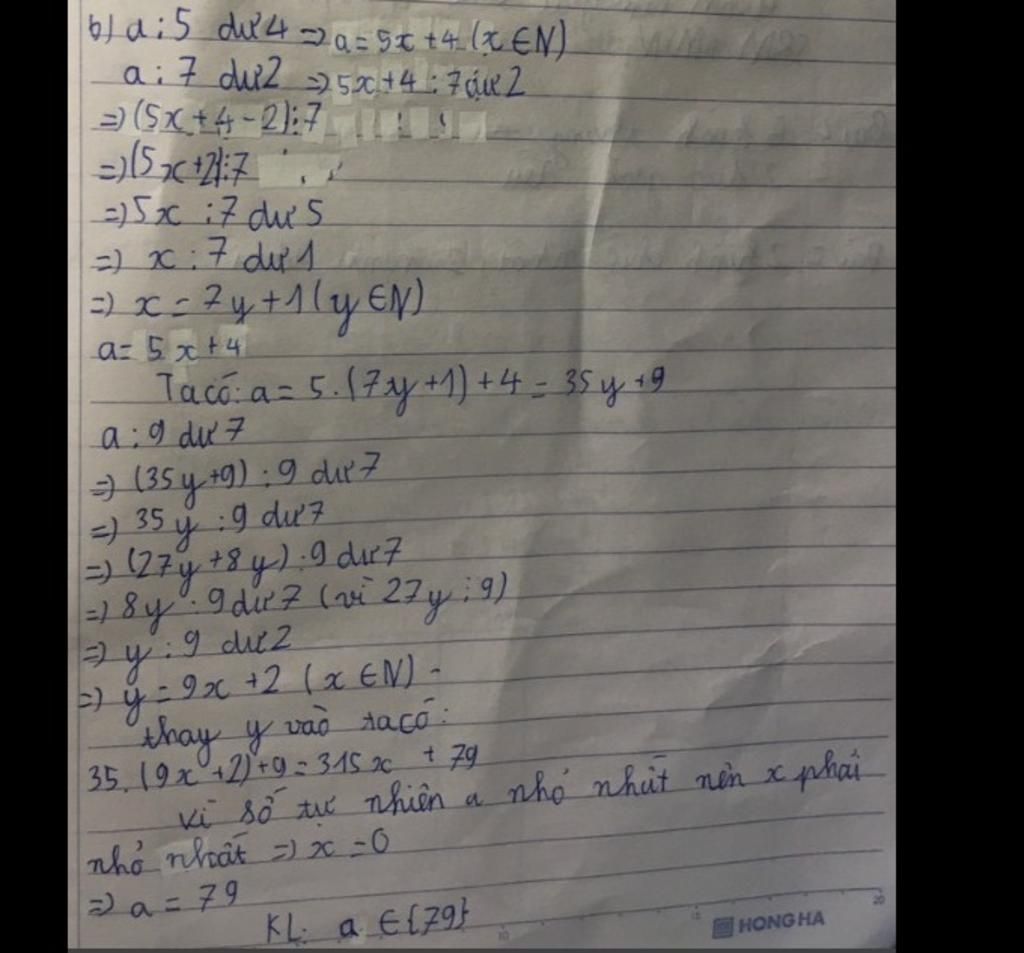 b) a : 5 dư 4 => a = 5x + 4 (x ∈ N)
a : 7 dư 2 => 5x + 4 : 7 dư 2
=> (5x + 4 - 2) ⋮ 7
=> (5x + 2) ⋮ 7
=> 5x : 7 dư 5
=> x : 7 dư 1
=> x = 7y + 1 (y ∈ N)
a = 5x + 4
Ta có: a = 5.(7y + 1) + 4 = 35y + 9
a : 9 dư 7
=> (35y + 9) : 9 dư 7
=> 35y : 9 dư 7
=> (27y + 8y) : 9 dư 7
=> 8y : 9 dư 7 (vì 27y ⋮ 9)
=> y : 9 dư 2
=> y = 9x + 2 (x ∈ N)
thay y vào ta có:
35.(9x + 2) + 9 = 315x + 79
vì số tự nhiên a nhỏ nhất nên x phải
nhỏ nhất => x = 0
=> a = 79
KL: a ∈ {79}
HONG HA
10 15 20